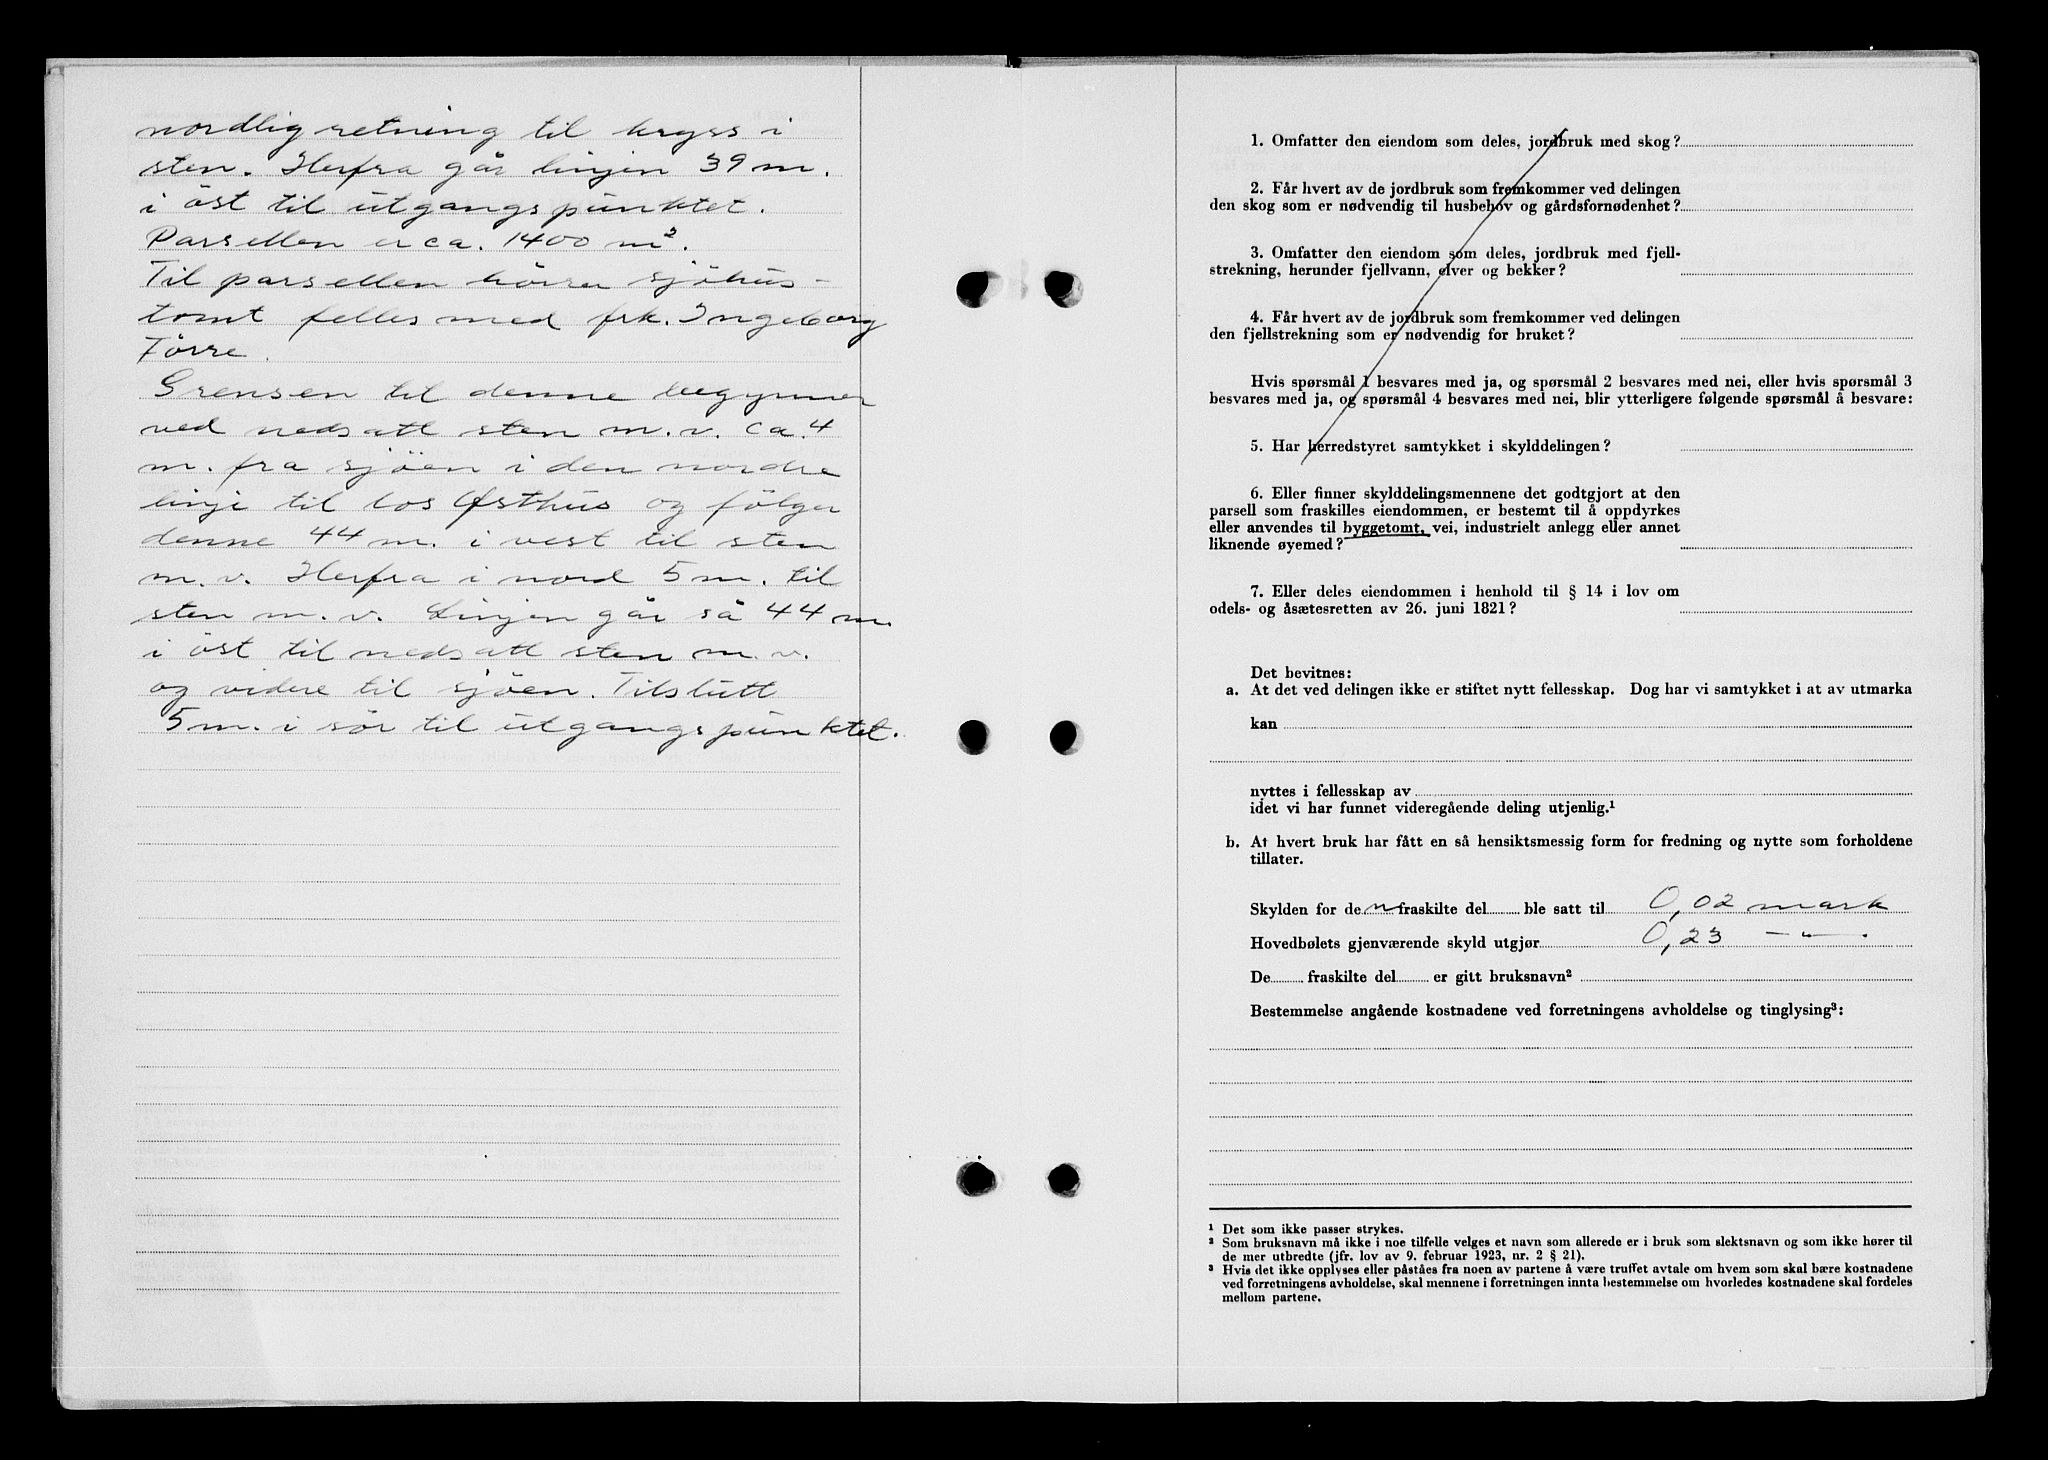 nordlig retning til kryss i
sten. Herfra går linjen 39 m.
i öst til utgangspunktet.
Parsellen er ca. 1400 m².
Til parsellen hörer sjöhus-
tomt felles med frk. Ingeborg
Törre.
Grensen til denne begynner
ved nedsatt sten m.v. ca. 4
m. fra sjöen i den nordre
linje til los Østhus og fölger
denne 44 m. i vest til sten
m.v. Herfra i nord 5 m. til
sten m.v. Linjen går så 44 m.
i öst til nedsatt sten m.v.
og videre til sjöen. Tilslutt
5 m. i sör til utgangspunktet.
1. Omfatter den eiendom som deles, jordbruk med skog?
2. Får hvert av de jordbruk som fremkommer ved delingen
den skog som er nødvendig til husbehov og gårdsfornødenhet?
3. Omfatter den eiendom som deles, jordbruk med fjell-
strekning, herunder fjellvann, elver og bekker?
4. Får hvert av de jordbruk som fremkommer ved delingen
den fjellstrekning som er nødvendig for bruket?
Hvis spørsmål 1 besvares med ja, og spørsmål 2 besvares med nei, eller hvis spørsmål 3
besvares med ja, og spørsmål 4 besvares med nei, blir ytterligere følgende spørsmål å besvare:
5. Har herredstyret samtykket i skylddelingen?
6. Eller finner skylddelingsmennene det godtgjort at den
parsell som fraskilles eiendommen, er bestemt til å oppdyrkes
eller anvendes til byggetomt, vei, industrielt anlegg eller annet
liknende øyemed?
7. Eller deles eiendommen i henhold til § 14 i lov om
odels- og åsætesretten av 26. juni 1821?
Det bevitnes:
a. At det ved delingen ikke er stiftet nytt fellesskap. Dog har vi samtykket i at av utmarka
kan
nyttes i fellesskap av
idet vi har funnet videregående deling utjenlig.¹
b. At hvert bruk har fått en så hensiktsmessig form for fredning og nytte som forholdene
tillater.
Skylden for den fraskilte del ble satt til 0,02 mark
Hovedbølets gjenværende skyld utgjør 0,23 — " —.
De fraskilte del er gitt bruksnavn²
Bestemmelse angående kostnadene ved forretningens avholdelse og tinglysing³:
¹ Det som ikke passer strykes.
² Som bruksnavn må ikke i noe tilfelle velges et navn som allerede er i bruk som slektsnavn og som ikke hører til
de mer utbredte (jfr. lov av 9. februar 1923, nr. 2 § 21).
³ Hvis det ikke opplyses eller påstås fra noen av partene å være truffet avtale om hvem som skal bære kostnadene
ved forretningens avholdelse, skal mennene i forretningen innta bestemmelse om hvorledes kostnadene skal fordeles
mellom partene.